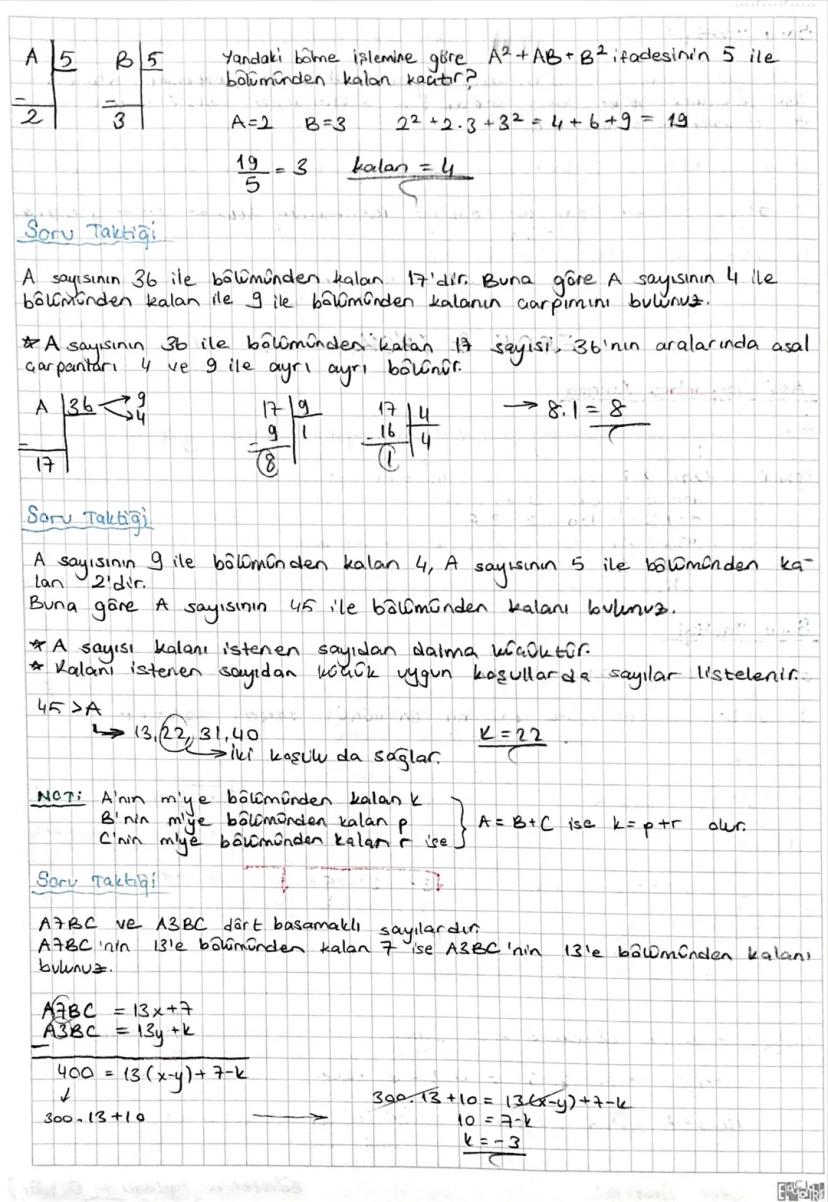 A | 5   B | 5   Yandaki bölme işlemine göre A² + AB + B² ifadesinin 5 ile
bölümünden kalan kaçtır?
- 2   - 3   A=2   B=3   2² + 2.3 + 3² = 4 + 6 + 9 = 19
19/5 = 3   kalan = 4
Soru Taktiği
A sayısının 36 ile bölümünden kalan 17'dir. Buna göre A sayısının 4 ile
bölümünden kalan ile 9 ile bölümünden kalanın çarpımını bulunuz.
* A sayısının 36 ile bölümünden kalan 17 sayısı, 36'nın aralarında asal
çarpanları 4 ve 9 ile ayrı ayrı bölünür.
A | 36 → 9   17 | 9   17 | 4   → 8.1 = 8
→ 4   - 9 | 1   - 16 | 4
- 17   8   1
Soru Taktiği
A sayısının 9 ile bölümünden kalan 4, A sayısının 5 ile bölümünden ka-
lan 2'dir.
Buna göre A sayısının 45 ile bölümünden kalanı bulunuz.
* A sayısı kalanı istenen sayıdan daima küçüktür.
* Kalanı istenen sayıdan küçük uygun koşullarda sayılar listelenir.
45 > A
↳ 13, 22, 31, 40   K = 22
→ iki koşulu da sağlar.
NOT: A'nın m'ye bölümünden kalan k
B'nin m'ye bölümünden kalan p   } A = B + C ise k = p + r olur.
C'nin m'ye bölümünden kalan r ise
Soru Taktiği
A7BC ve A3BC dört basamaklı sayılardır.
A7BC'nin 13'e bölümünden kalan 7 ise A3BC'nin 13'e bölümünden kalanı
bulunuz.
A7BC = 13x+7
- A3BC = 13y+k
400 = 13(x-y) + 7-k
↓   300.13 + 10 = 13(x-y) + 7-k
300.13+10   →   10 = 7-k
k = -3